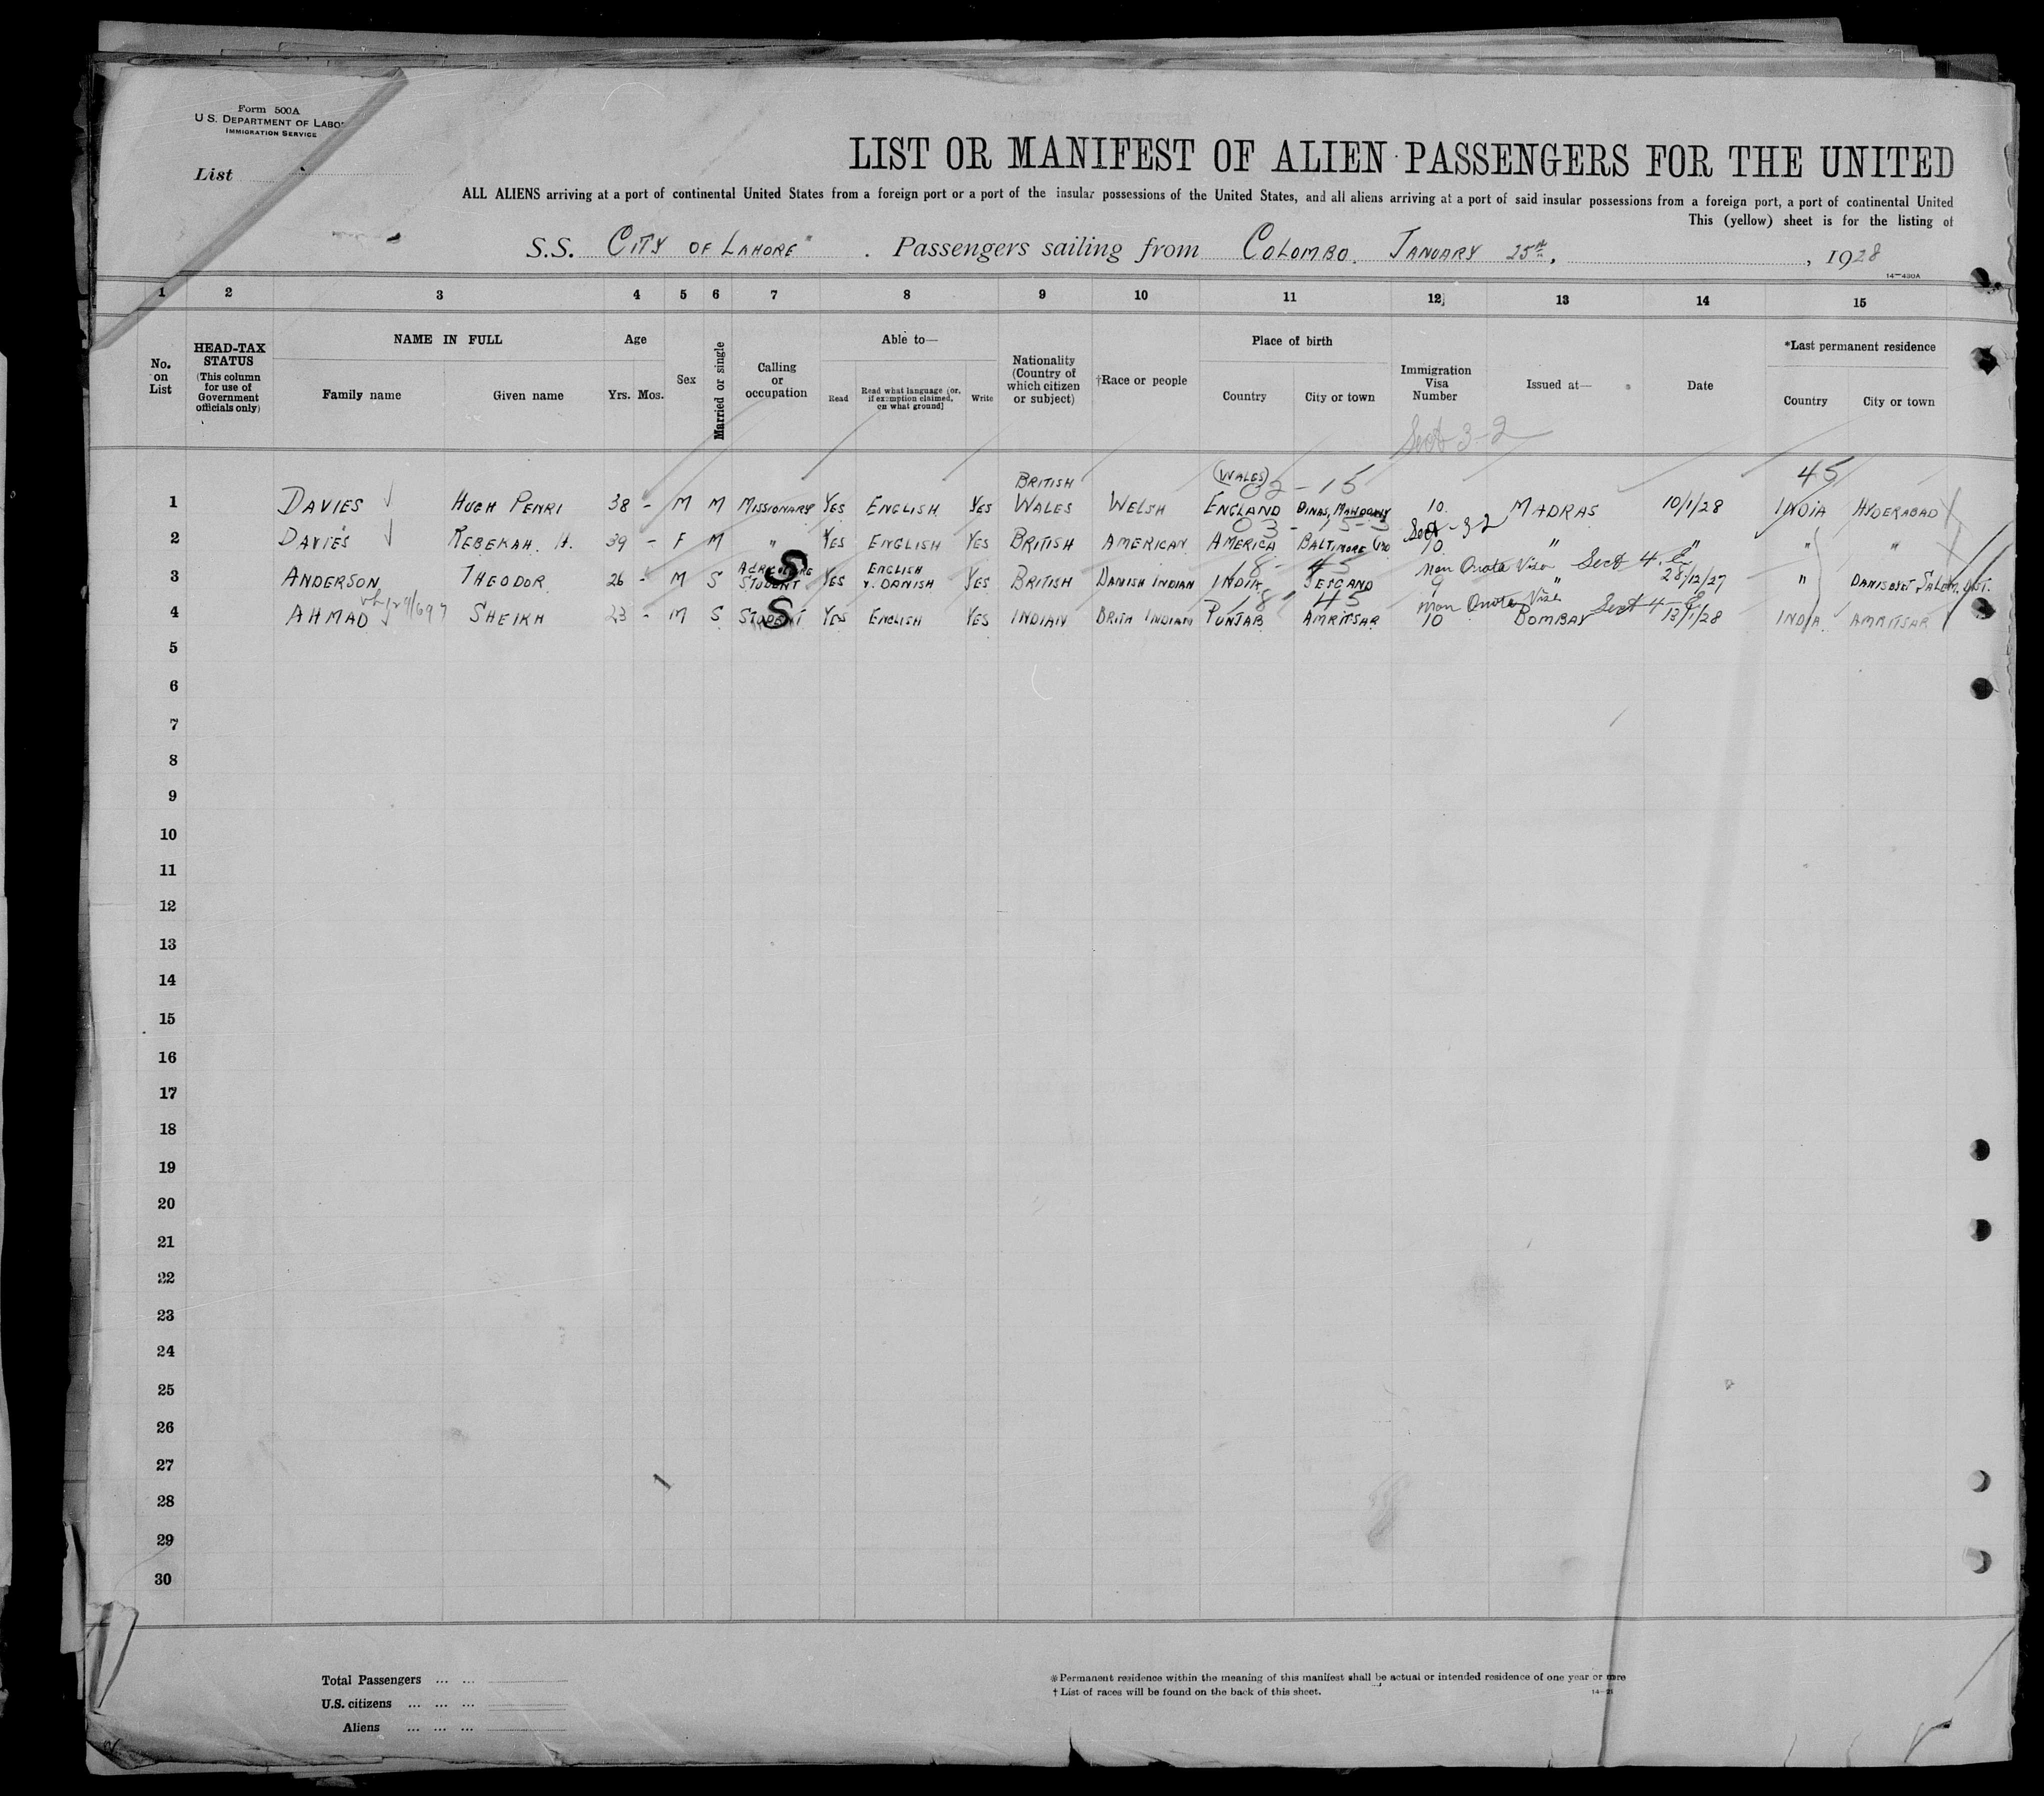 Form 500A
U. S. DEPARTMENT OF LABO
IMMIGRATION SERVICE
List
LIST OR MANIFEST OF ALIEN PASSENGERS FOR THE UNITED
ALL ALIENS arriving at a port of continental United States from a foreign port or a port of the insular possessions of the United States, and all aliens arriving at a port of said insular possessions from a foreign port, a port of continental United
This (yellow) sheet is for the listing of
S.S. CITY OF LAHORE" . Passengers sailing from COLOMBO. JANUARY 25th, , 1928
14—430A
1 2 3 4 5 6 7 8 9 10 11 12 13 14 15
No. on List
HEAD-TAX STATUS
(This column for use of Government officials only)
NAME IN FULL
Family name Given name
Age
Yrs. Mos.
Sex
Married or single
Calling or occupation
Able to—
Read
Read what language (or, if exemption claimed, on what ground)
Write
Nationality (Country of which citizen or subject)
†Race or people
Place of birth
Country City or town
Immigration Visa Number
Issued at—
Date
*Last permanent residence
Country City or town
Sect 3-2
BRITISH (WALES) 02-15 45
1 DAVIES HUGH PENRI 38 - M M MISSIONARY YES ENGLISH YES WALES WELSH ENGLAND DINAS, 10. MADRAS 10/1/28 INDIA HYDERABAD
03-15-3 Sect-3-2
2 DAVIES REBEKAH. H. 39 - F M " YES ENGLISH YES BRITISH AMERICAN AMERICA BALTIMORE 10 " " " "
AGRICULTURE ENGLISH 18-45 Non Quota Visa Sect 4. E
3 ANDERSON THEODOR 26 - M S STUDENT S YES & DANISH YES BRITISH DANISH INDIAN INDIA 9 " 28/12/27 " SALEM. DIST.
18 45 Non Quota Visa Sect 4 E
4 AHMAD SHEIKH 23 - M S STUDENT S YES ENGLISH YES INDIAN BRITH INDIAN PUNJAB AMRITSAR 10 BOMBAY 13/1/28 INDIA AMRITSAR
5
6
7
8
9
10
11
12
13
14
15
16
17
18
19
20
21
22
23
24
25
26
27
28
29
30
Total Passengers ... ...
U.S. citizens ... ... ...
Aliens ... ... ...
*Permanent residence within the meaning of this manifest shall be actual or intended residence of one year or more
†List of races will be found on the back of this sheet.